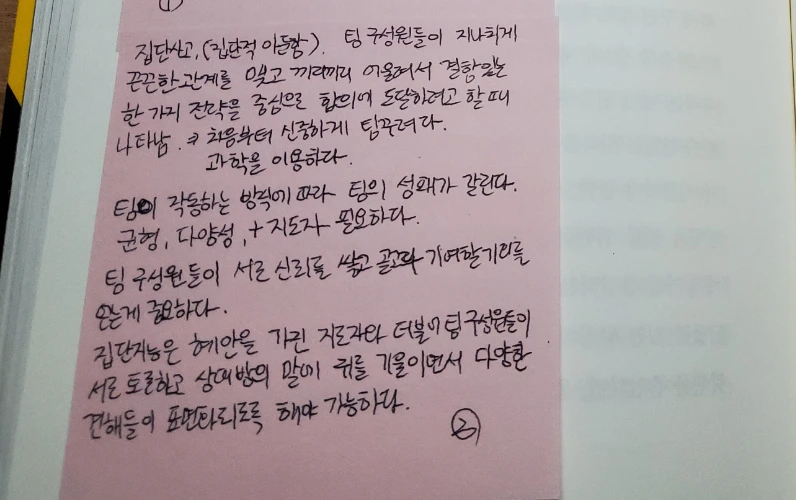 ①
집단사고, (집단적 아둔함). 팀 구성원들이 지나치게
끈끈한 관계를 맺고 끼리끼리 어울려서 결함있는
한 가지 전략을 중심으로 합의에 도달하려고 할 때
나타남. → 처음부터 신중하게 팀꾸려다.
과학을 이용하다.
팀이 작동하는 방식에 따라 팀의 성패가 갈린다.
균형, 다양성, + 지도자 필요하다.
팀 구성원들이 서로 신뢰를 쌓고 골고루 기여할 기회를
얻는게 중요하다.
집단지능은 혜안을 가진 지도자와 더불어 팀구성원들이
서로 토론하고 상대방의 말에 귀를 기울이면서 다양한
견해들이 표면타리도록 해야 가능하다.
②